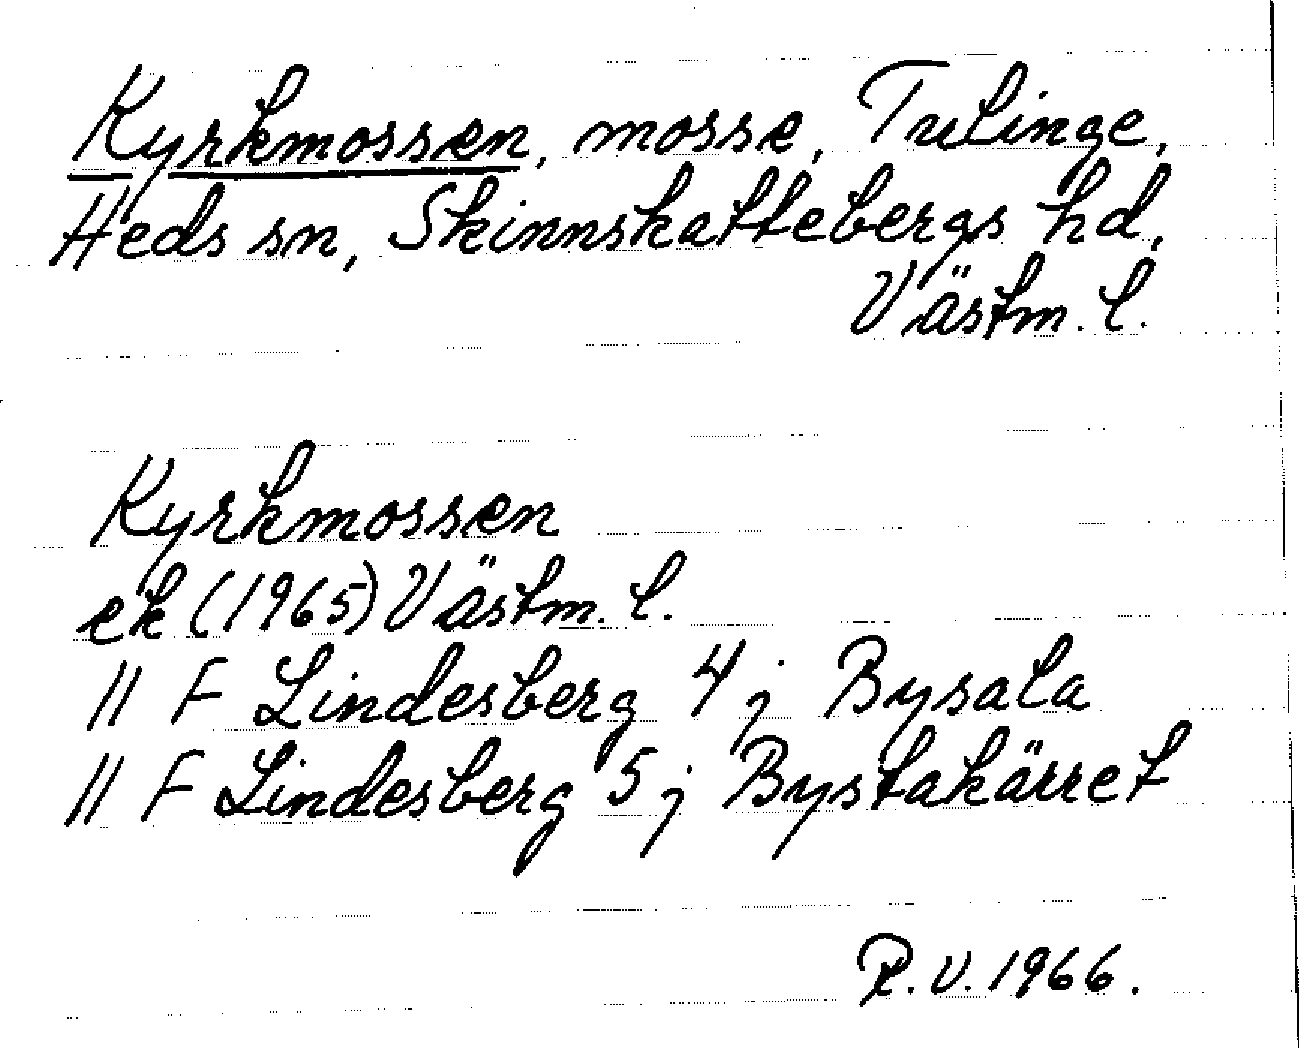 Kyrkmossen, mosse, Trulinge,
Heds sn, Skinnskattebergs hd,
Västm. l.
Kyrkmossen
ek (1965) Västm. l.
11 F Lindesberg 4 j Bysala
11 F Lindesberg 5 j Bystakärret
R.V. 1966.